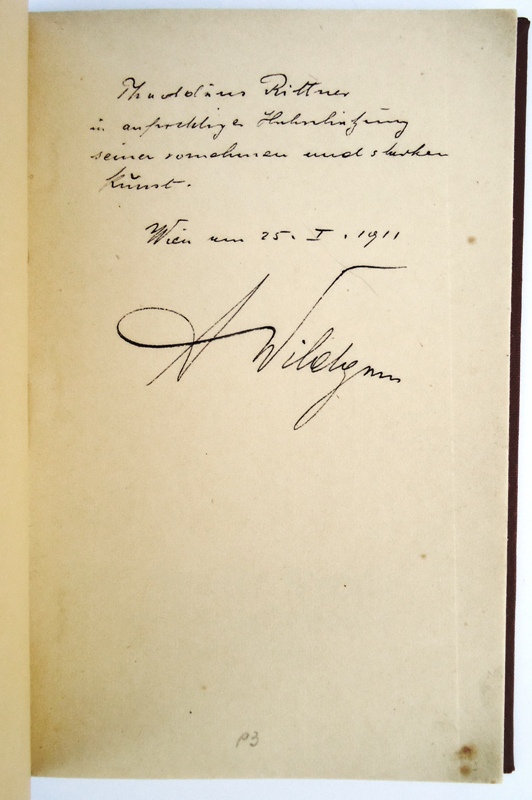 Thaddäus Rittner
in aufrichtiger Hochschätzung
seiner vornehmen und starken
Kunst.
Wien am 25. I. 1911
A Wildgans
P3